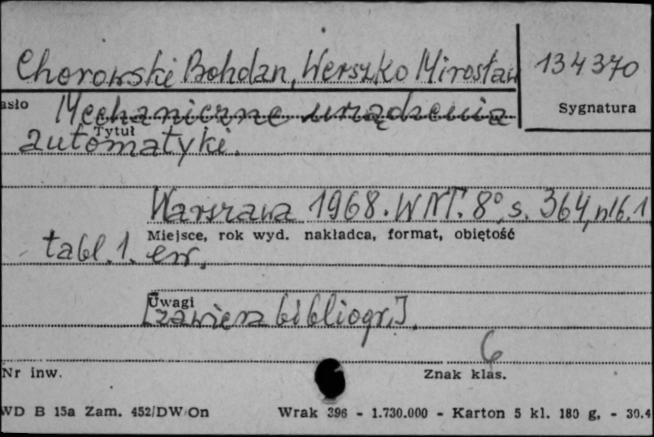 Chorowski Bohdan, Werszko Mirosław 134370
asło Mechaniczne urządzenia Sygnatura
Tytuł
automatyki.
Warszawa 1968. WNT. 8°, s. 364, nlb. 1
Miejsce, rok wyd. nakładca, format, objętość
tabl. 1. err.
Uwagi
[zawiera bibliogr.].
6
Nr inw. Znak klas.
WD B 15a Zam. 452/DW/On Wrak 396 - 1.730.000 - Karton 5 kl. 180 g. - 30.4